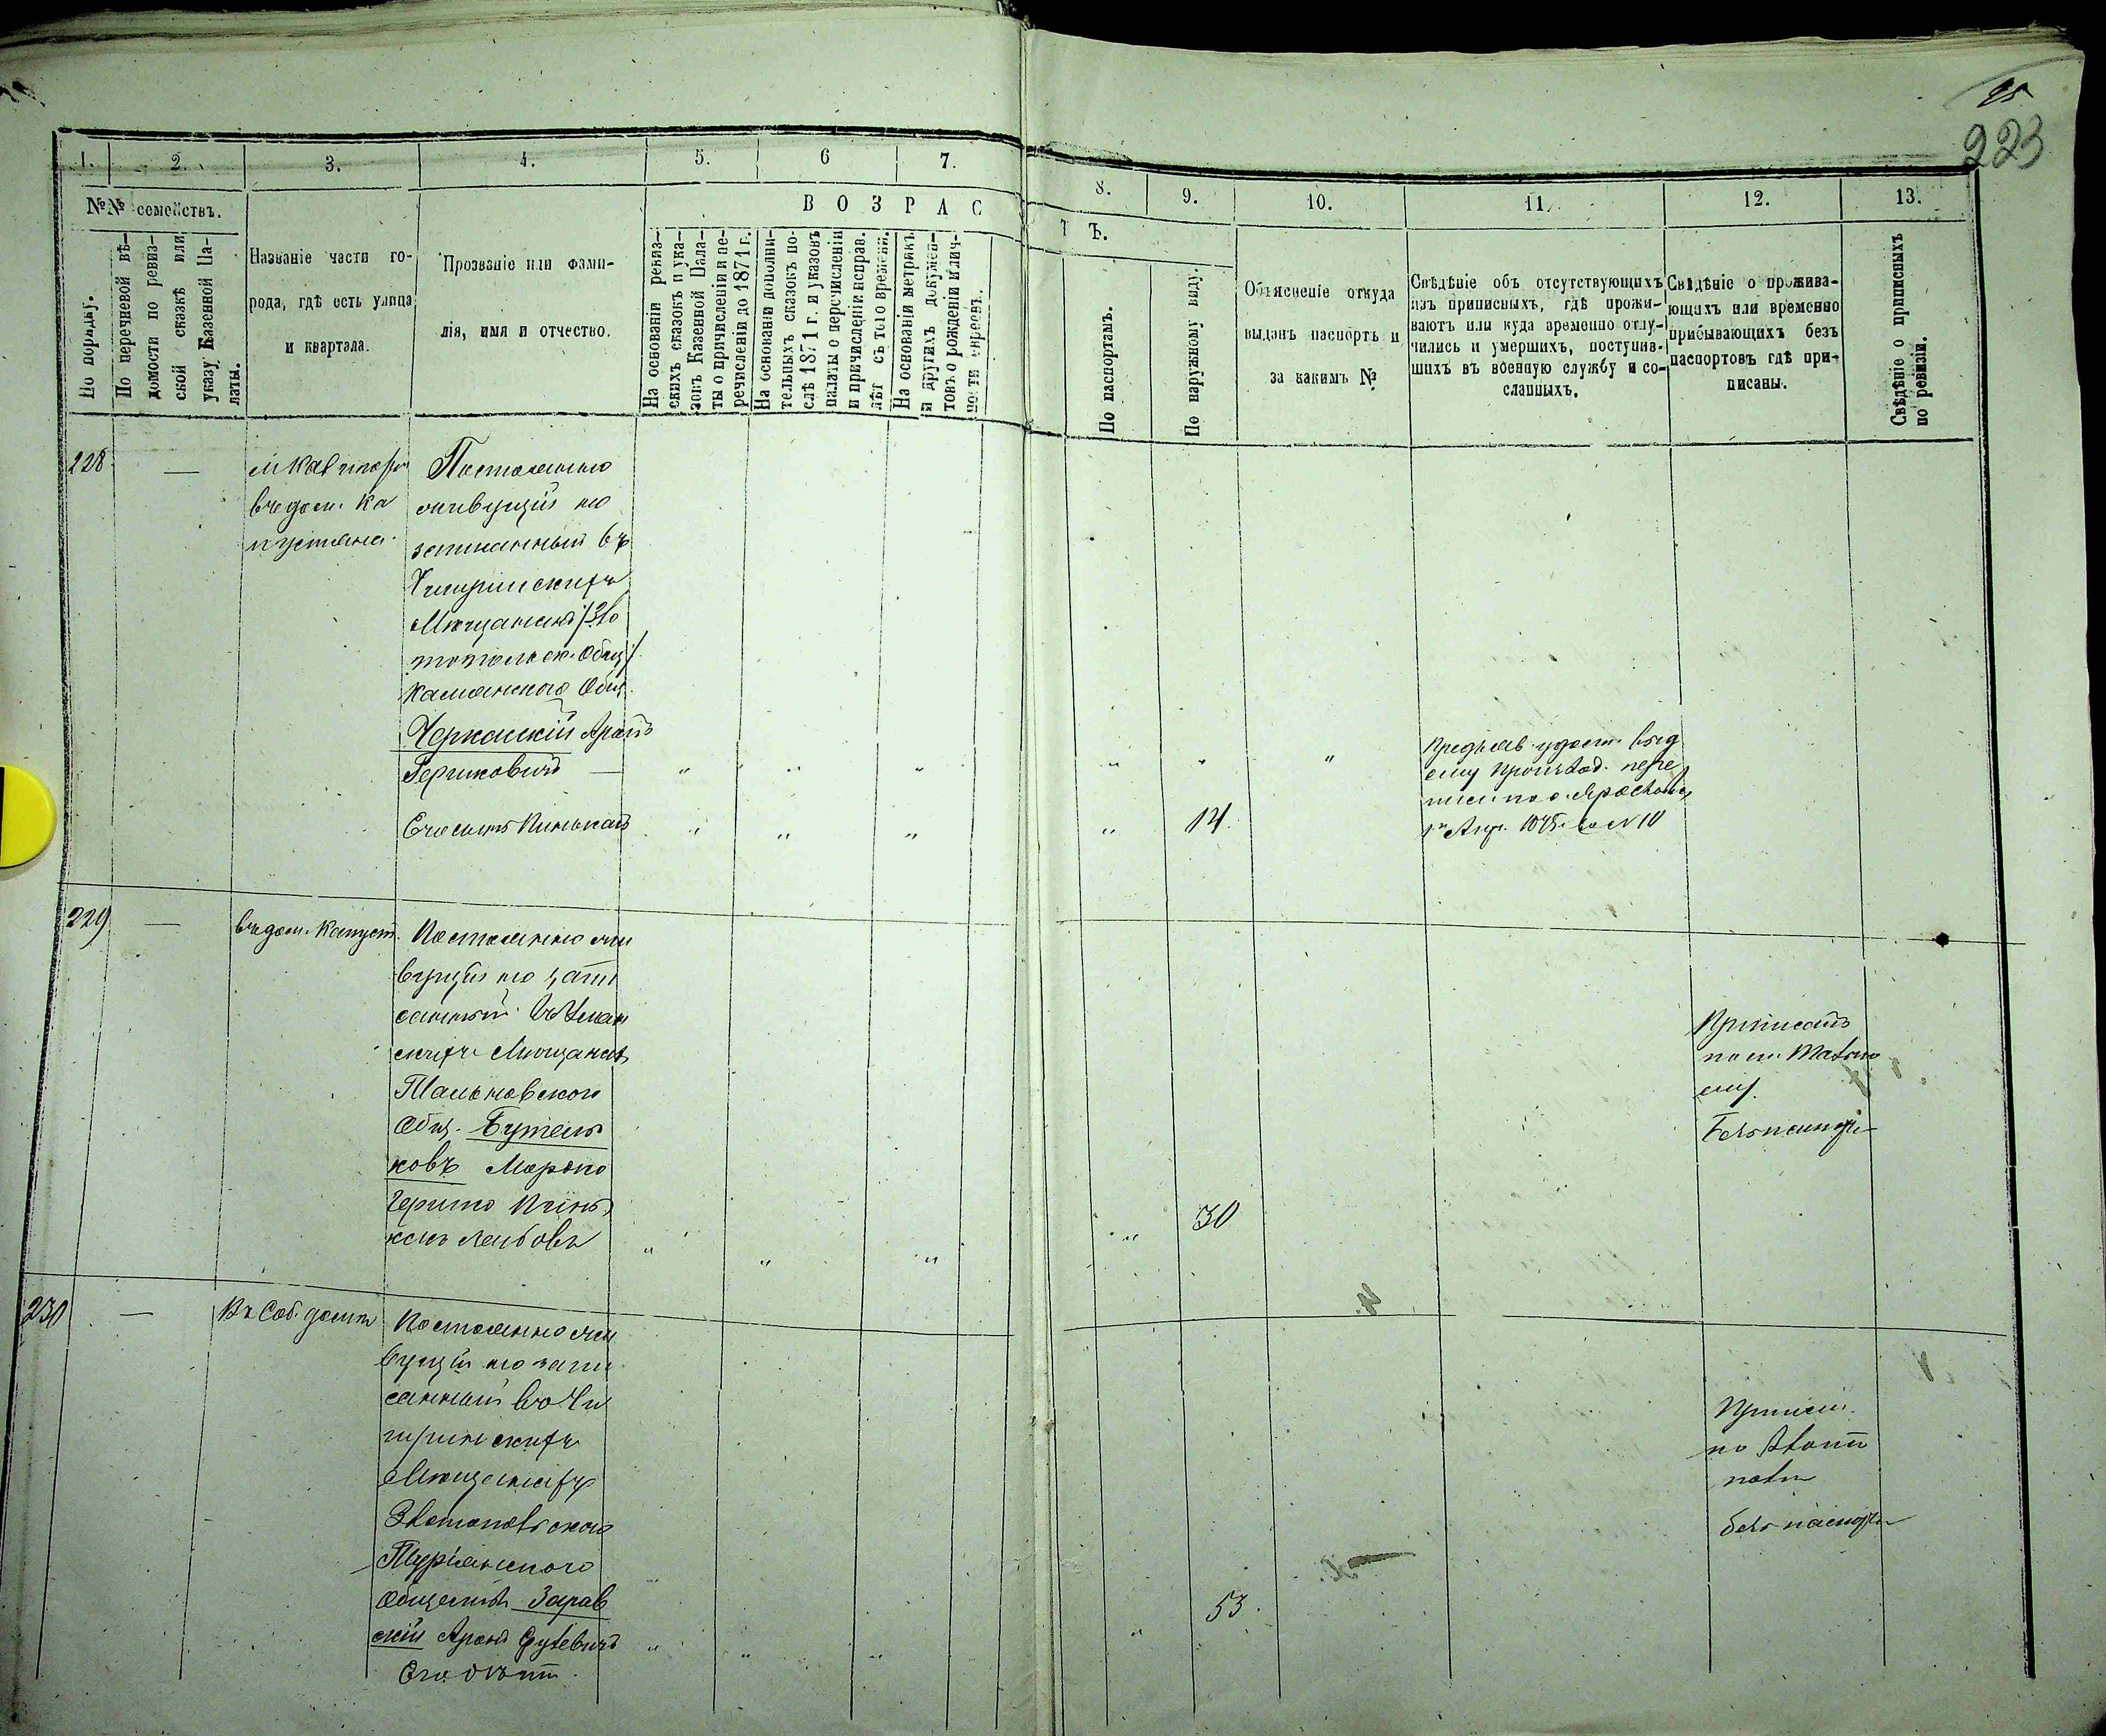 95
223
1. 2. 3. 4. 5. 6 7. 8. 9. 10. 11. 12. 13.
№№ семействъ.
По порядку.
По перечневой вѣ-
домости по ревиз-
ской сказкѣ или
указу Казенной Па-
латы.
Названіе части го-
рода, гдѣ есть улица
и квартала.
Прозваніе или фами-
лія, имя и отчество.
ВОЗРАСТЪ.
На основаніи ревиз-
скихъ сказокъ и ука-
зокъ Казенной Пала-
ты о причисленіи и пе-
речисленіи до 1871 г.
На основаніи дополни-
тельныхъ сказокъ по-
слѣ 1871 г. и указовъ
палаты о перечисленіи
и причисленіи исправ.
лѣт съ того времени.
На основаніи метрикъ
и другихъ докумен-
товъ о рожденіи и лич-
ности евреевъ.
По паспортамъ.
По наружному виду.
Объясненіе откуда
выданъ паспортъ и
за какимъ №
Свѣдѣніе объ отсутствующихъ
изъ приписныхъ, гдѣ прожи-
ваютъ или куда временно отлу-
чились и умершихъ, поступив-
шихъ въ военную службу и со-
сланныхъ.
Свѣдѣніе о прожива-
ющихъ или временно
прибывающихъ безъ
паспортовъ гдѣ при-
писаны.
Свѣдѣніе о приписныхъ
по ревизіи.
228
въ дом. Ка
пустяна
Постоянно
живущій но
записанный въ
Чигиринскихъ
Мѣщанахъ /Зло
топольск. Общ/
Каменского Общ.
Черкаскій Аронъ
Гершковичъ
Его сынъ Пинькасъ
14.
ему
№ 10
229
въ дом. Капуст.
Постоянно жи
вущій но запи
санный въ Уман
скихъ Мѣщанахъ
Тальновского
Общ. Бутель
ковъ
Лейбовъ
30
Приписанъ
по
ему
Безъ паспорт
230
Въ Соб. домѣ
Постоянно жи
вущій но запи
санный въ Чи
гиринскихъ
Мѣщанахъ
Златопольского
Туріянского
Общества Зарав
скій Аронъ
53.
Приписан.
по Злато
полю
безъ паспорт